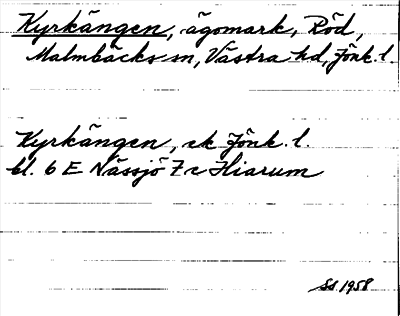 Kyrkängen, ägomark, Röd,
Malmbäcks sn, Västra hd, Jönk. l.
Kyrkängen, ek Jönk. l.
bl. 6 E Nässjö 7 c Hiarum
SS 1958